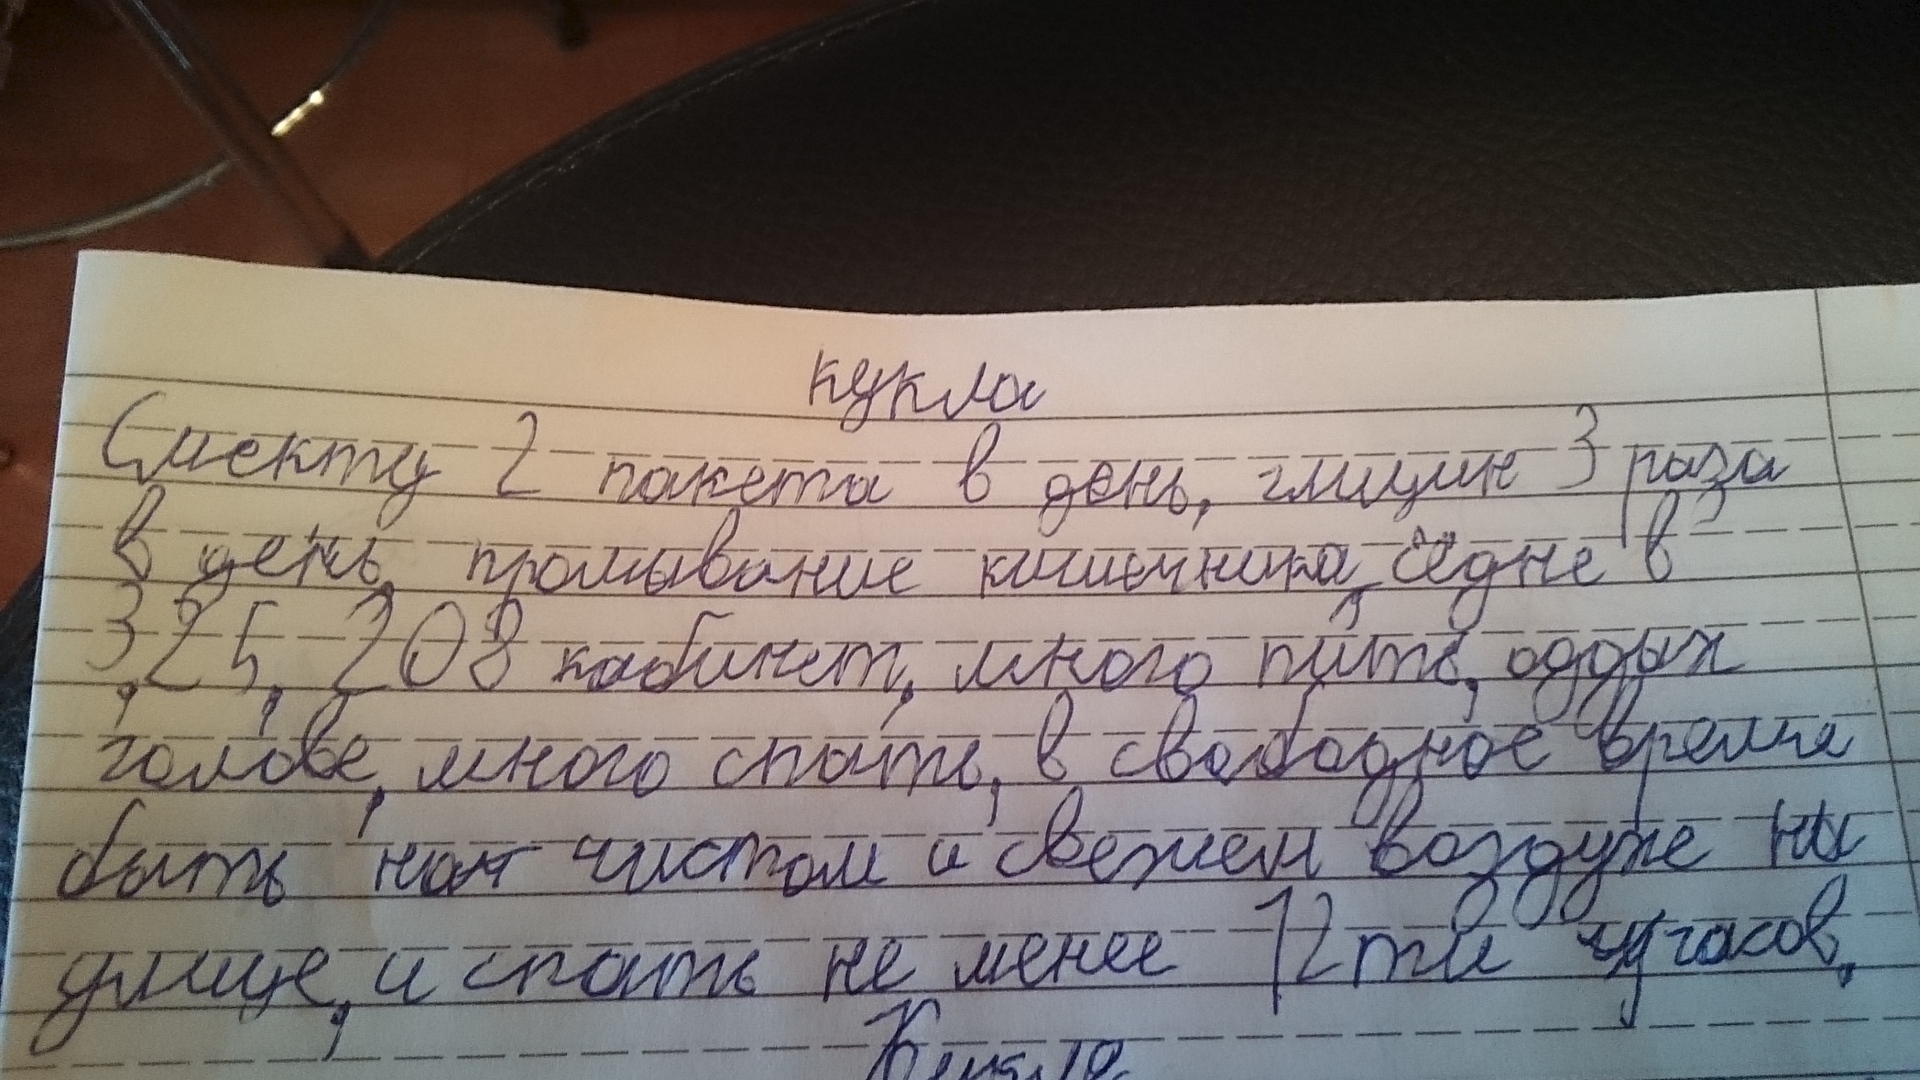 кукла
Смекту 2 пакета в день, глицин 3 раза
в день, промывание кишечника, сёдне в
3,25, 208 кабинет, много пить, оддых
голове, много спать, в свободное время
быть на чистом и свежем воздухе на
улице, и спать не менее 12ти часов,